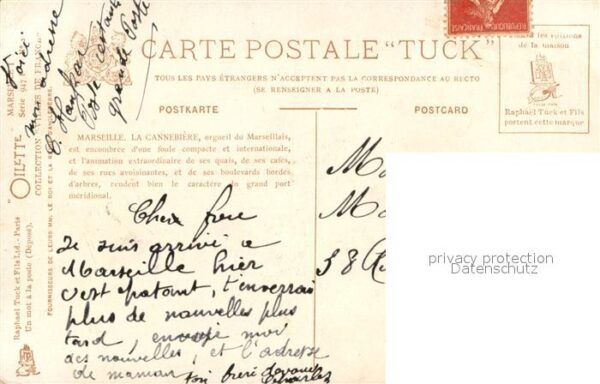 CARTE POSTALE "TUCK"
TOUS LES PAYS ÉTRANGERS N'ACCEPTENT PAS LA CORRESPONDANCE AU RECTO
(SE RENSEIGNER A LA POSTE)
POSTKARTE
POSTCARD
RÉPUBLIQUE FRANÇAISE
les éditions
de la maison
Raphael Tuck et Fils
portent cette marque
Voici
mon adresse
Poste restante
grande Poste
"OILETTE"
COLLECTION
Raphael Tuck et Fils Ltd. - Paris
Un mot à la poste (Déposé).
FOURNISSEURS DE LEURS MM. LE ROI ET LA
MARSEILLE. LA CANNEBIÈRE, orgueil du Marseillais,
est encombrée d'une foule compacte et internationale,
et l'animation extraordinaire de ses quais, de ses cafés,
de ses rues avoisinantes, et de ses boulevards bordés
d'arbres, rendent bien le caractère du grand port
méridional.
Cher frere
Je suis arrivé a
Marseille hier
c'est epatant, t'enverrai
plus de nouvelles plus
tard, envoie moi
des nouvelles, et l'adresse
de maman
ton frere
58
privacy protection
Datenschutz